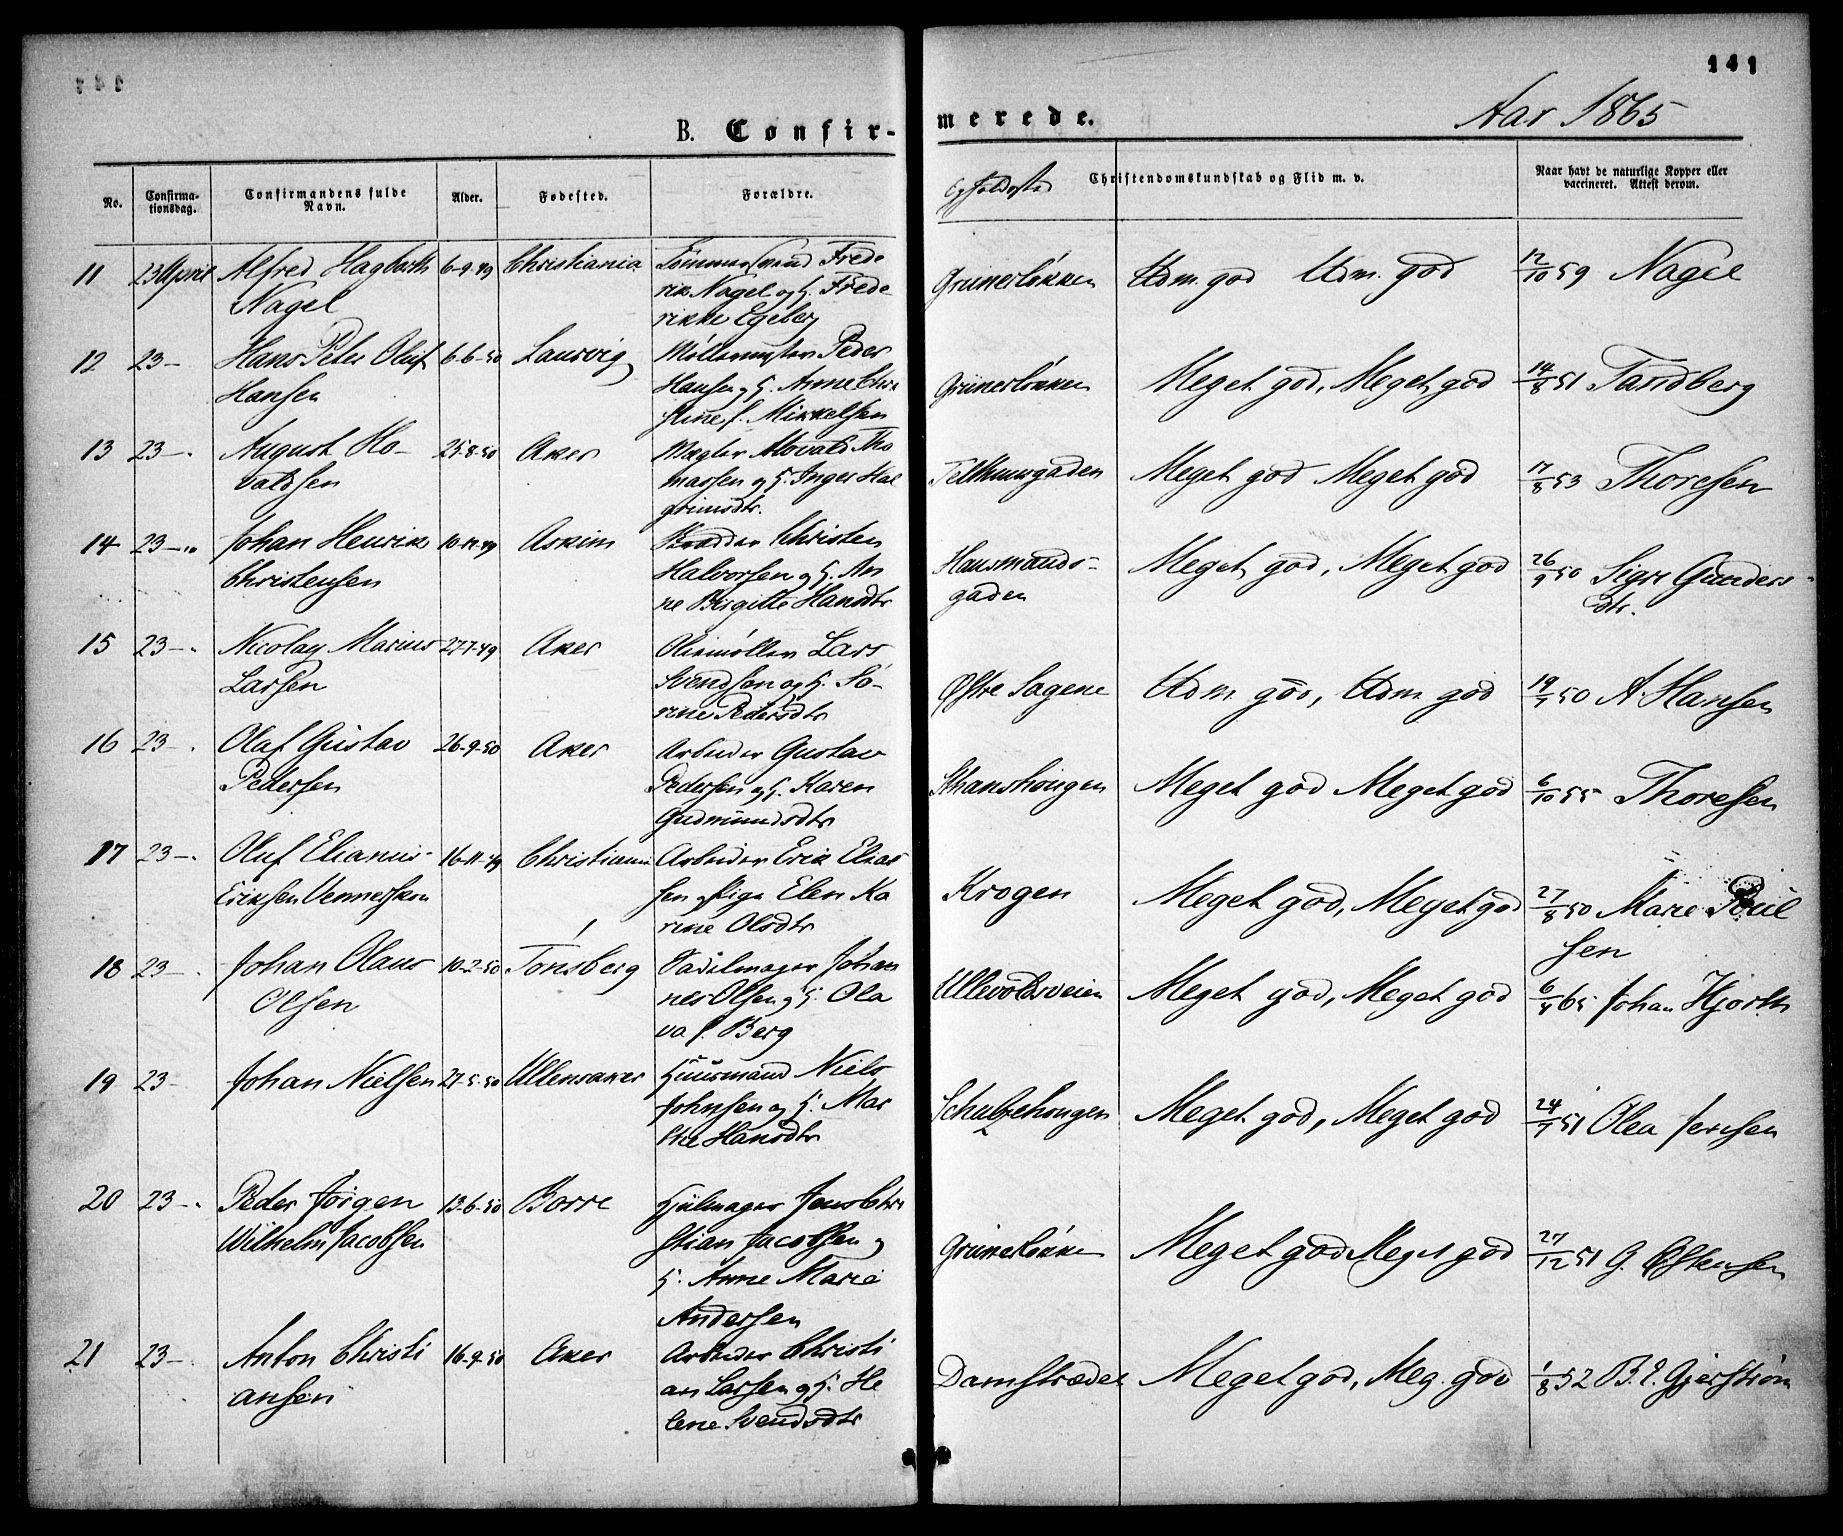 141
B. Confir-
merede.
Aar 1865
No.
Confirma-
tionsdag.
Confirmandens fulde
Navn.
Alder.
Fødested.
Forældre.
Opholdssted
Christendomskundskab og Flid m. v.
Naar havt de naturlige Kopper eller
vaccineret. Attest derom.
11 23 April Alfred Hagbarth 6-9-49 Christiania Tømmermand Frede
Nagel rik Nagel og H. Frede
rikke Egeberg
Grünerløkken Udm. god Udm. god 12/10 59 Nagel
12 23 — Hans Peter Oluf 6-6-50 Laurvig Møllemester Peder
Hansen Hansen og H. Anne Chri
stine f. Mikkelsen
Grünerløkken Meget god, Meget god 14/8 51 Tandberg
13 23 —. August Ho- 25-8-50 Aker Hovald Tho
valdsen massen og H. Inger Hal
grimsdtr.
Telthusgaden Meget god Meget god 17/8 53 Thoresen
14 23 — Johan Henrik 10-11-49 Askim Christen
Christensen Halvorsen og H. An
ne Birgitte Hansdtr
Hausmands-
gaden Meget god, Meget god 26/9 50 Sigri Gunders
dtr.
15 23 —. Nicolay Marius 27-7-49 Aker Oliemøller Lars
Larsen Svendsen og H. Sø-
rine Pedersdtr
Østre Sagene Udm. god, Udm. god 19/7 50 A Hansen
16 23 —. Olaf Gustav 26-9-50 Aker Arbeider Gustav
Pedersen Pedersen og H. Karen
Gudmundsdtr
St Hanshougen Meget god Meget god 6/10 55 Thoresen
17 23 —. Oluf Elianus 16-11-49 Christiania Arbeider Erik Elias
Eriksen Vennerskou sen og Pige Elen Ka
rine Olsdtr
Krogen Meget god, Meget god 27/8 50 Marie Poul
sen
18 23 —. Johan Olaus 10-2-50 Tønsberg Sadelmager Johan
Olsen nes Olsen og H. Ola
va f. Berg
Ullevoldsveien Meget god, Meget god 6/4 65 Johan Hjorth
19 23 - Johan Nielsen 27-5-50 Ullensaker Huusmand Niels
Johnsen og H. Mar
the Hansdtr
Schultzehougen Meget god, Meget god 24/7 51 Olea Jensen
20 23 —. Peder Jørgen 13-6-50 Borre Hjulmager Jens Chri
Wilhelm Jacobsen stian Jacobsen og
H. Anne Marie
Andersen
Grünerløkken Meget god Meget god 27/12 51 G. Østensen
21 23 —. Anton Christi 16-9-50 Aker Arbeider Christi
ansen an Larsen og H. He
lene Svendsdtr
Damstrædet Meget god, Meg. god 1/8 52 B. E. Gjerstrøm